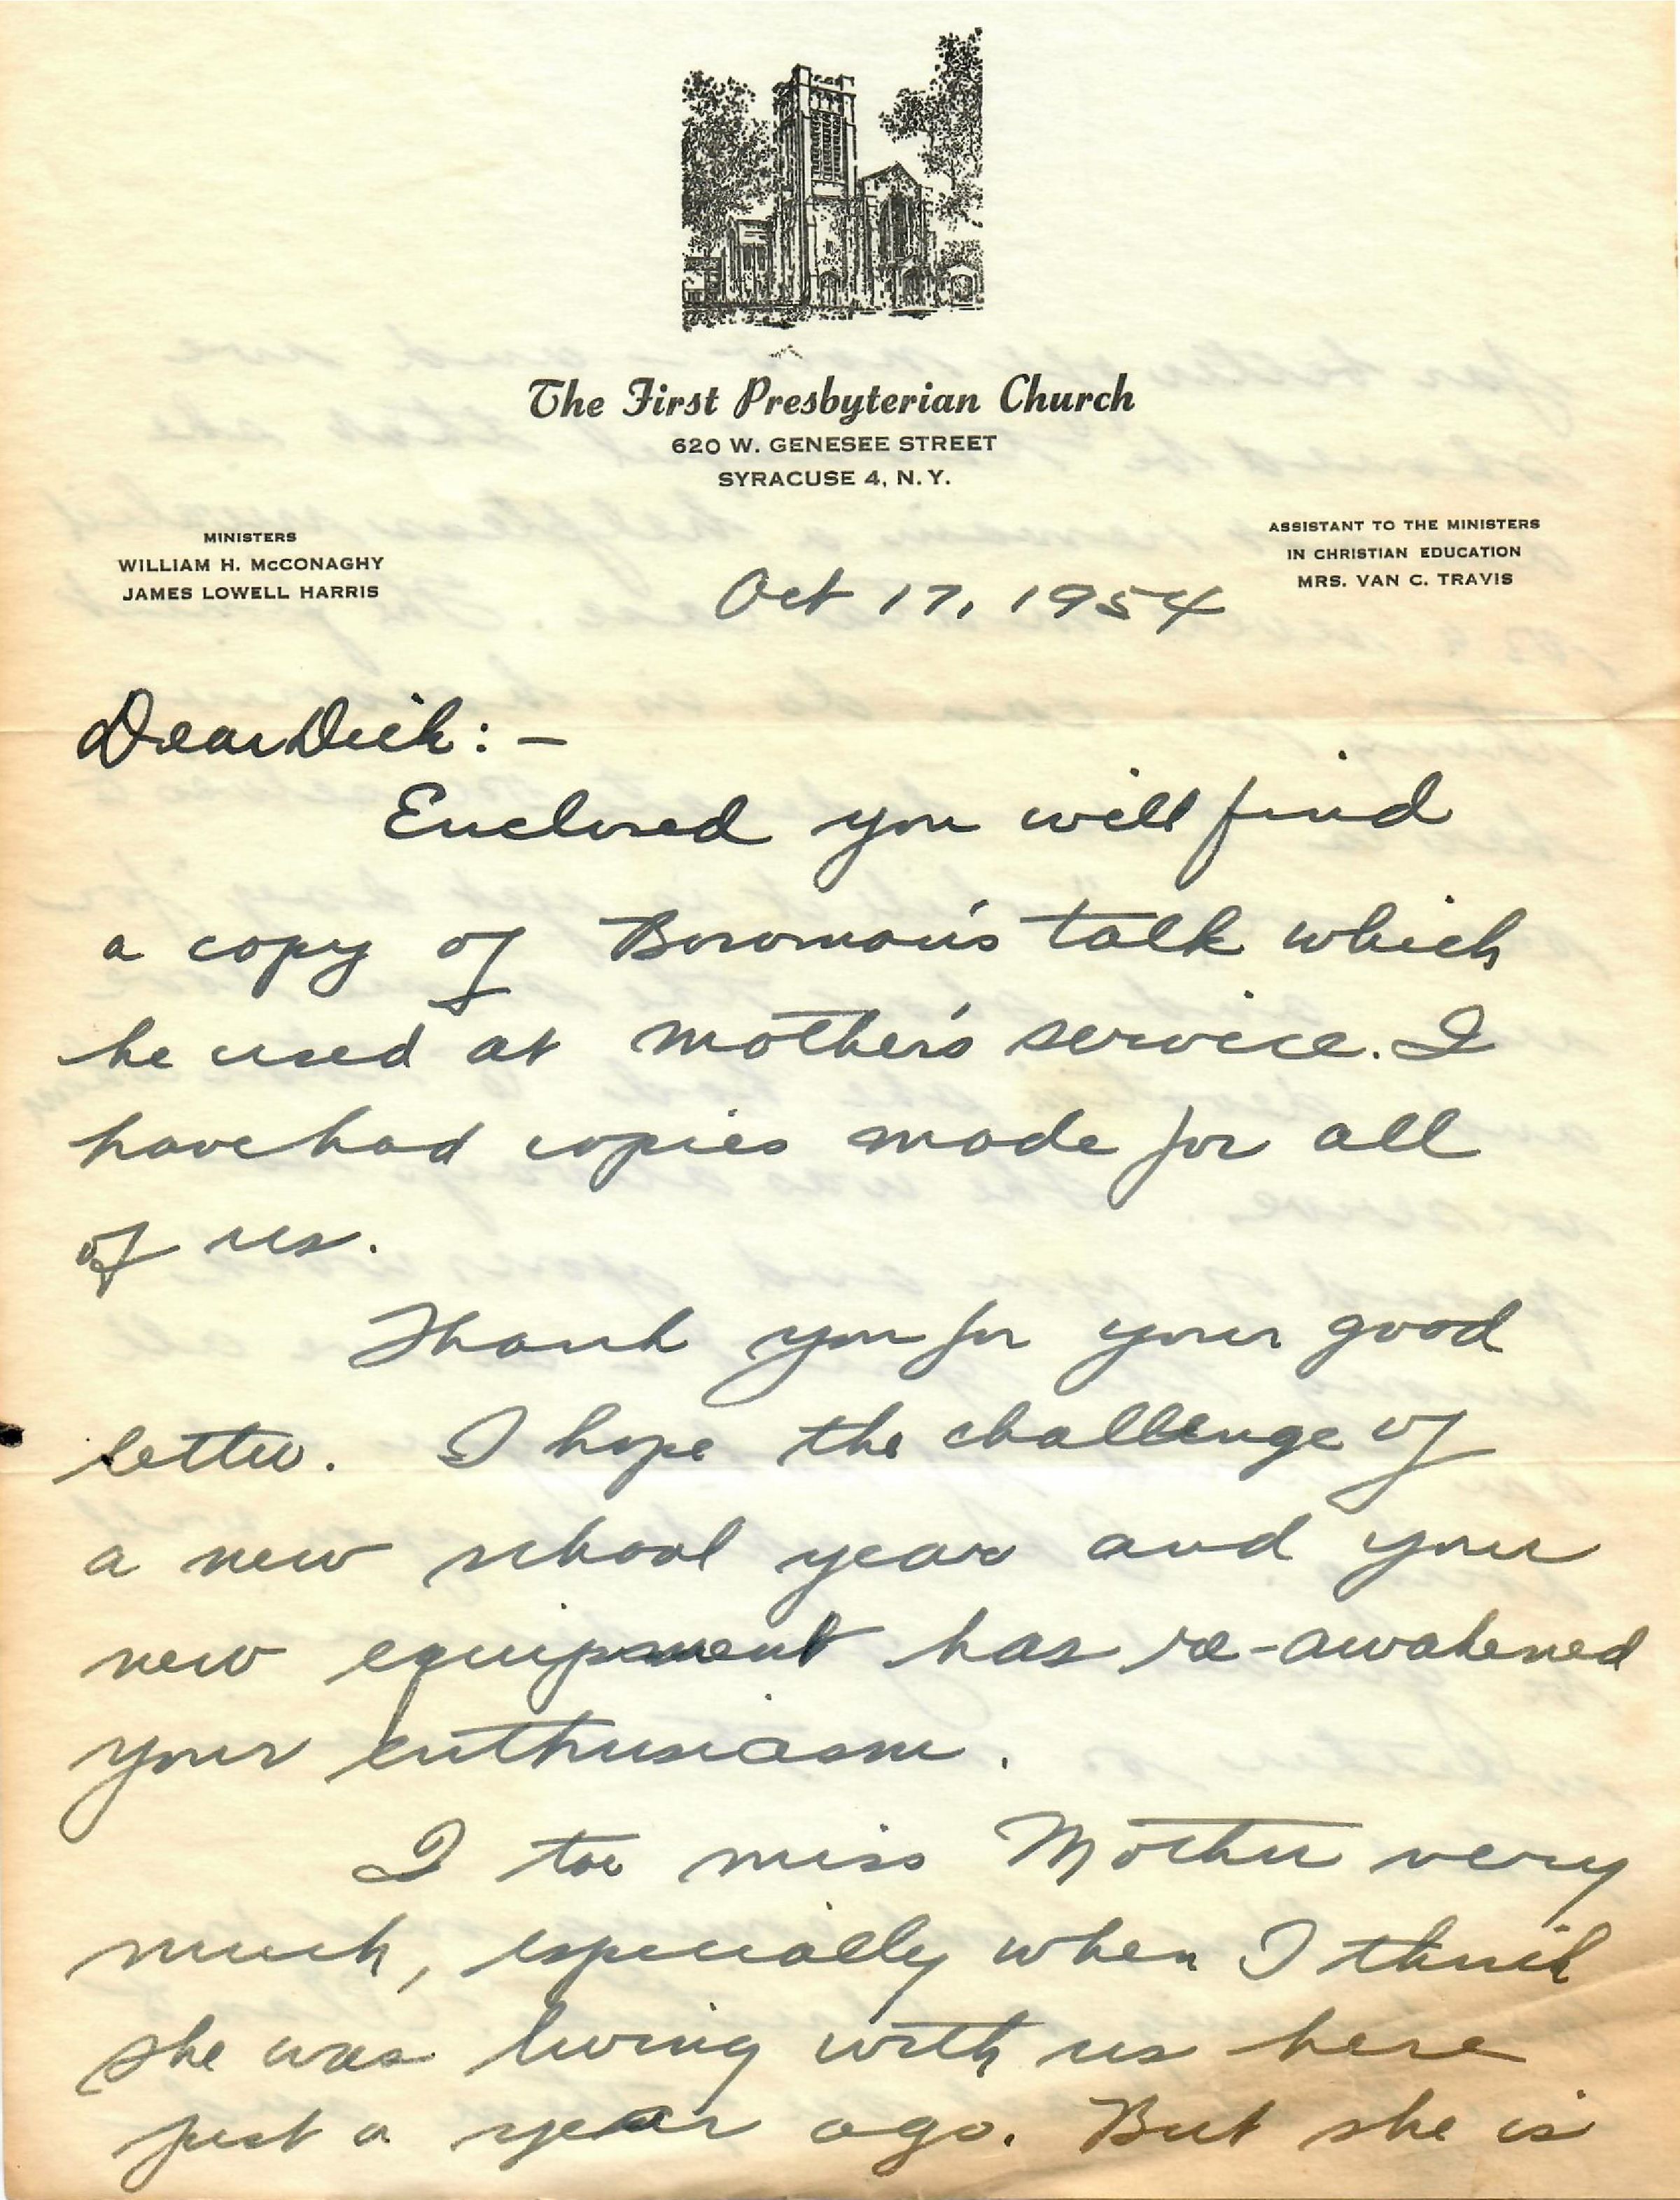 The First Presbyterian Church
620 W. GENESEE STREET
SYRACUSE 4, N. Y.
MINISTERS
WILLIAM H. McCONAGHY
JAMES LOWELL HARRIS
ASSISTANT TO THE MINISTERS
IN CHRISTIAN EDUCATION
MRS. VAN C. TRAVIS
Oct 17, 1954
Dear Dick: -
Enclosed you will find
a copy of Bowman's talk which
he used at mother's service. I
have had copies made for all
of us.
Thank you for your good
letter. I hope the challenge of
a new school year and your
new equipment has re-awakened
your enthusiasm.
I too miss Mother very
much, especially when I think
she was living with us here
just a year ago. But she is